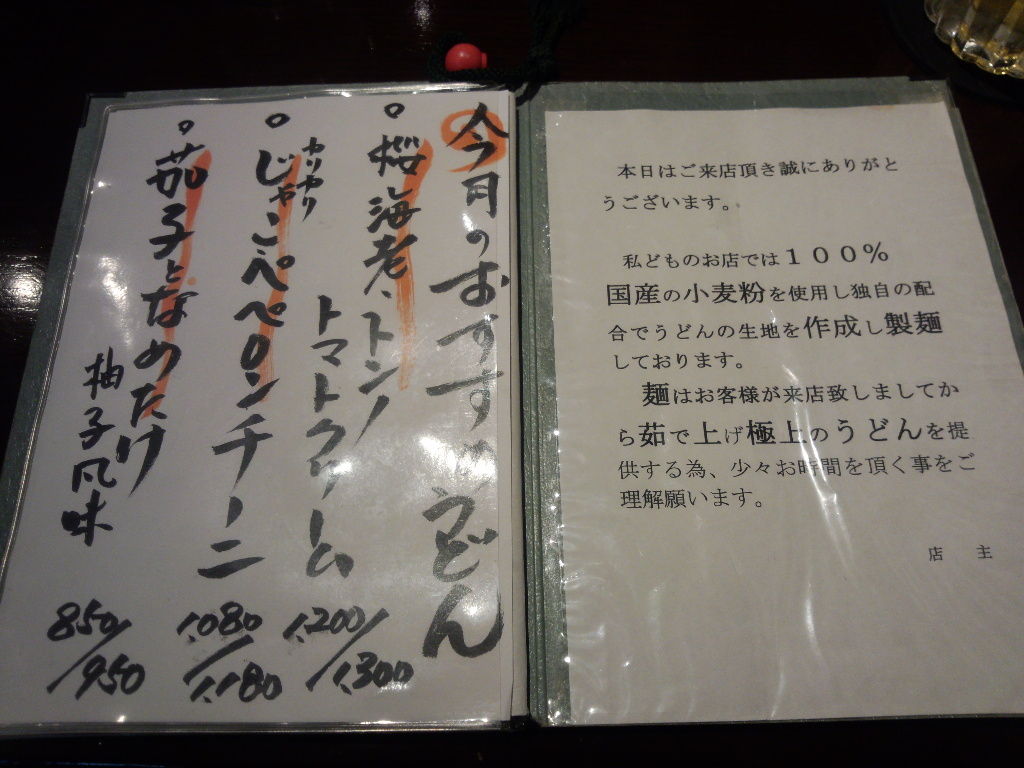 今月のおすすめうどん
桜海老、トンノ
トマトクリーム
1,200/1,300
カリカリ
じゃこペペロンチーニ
1,080/1,180
茄子となめたけ
柚子風味
850/950
本日はご来店頂き誠にありがと
うございます。
私どものお店では100%
国産の小麦粉を使用し独自の配
合でうどんの生地を作成し製麺
しております。
麺はお客様が来店致しましてか
ら茹で上げ極上のうどんを提
供する為、少々お時間を頂く事をご
理解願います。
店 主